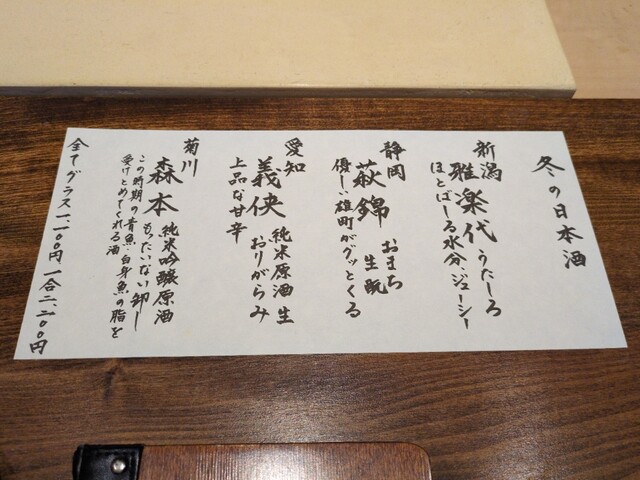 冬の日本酒
新潟
雅楽代 うたしろ
ほとばーる水分、ジューシー
静岡
萩錦 おまち
生酛
優しい雄町がグッとくる
愛知
義侠 純米原酒生
おりがらみ
上品な甘辛
菊川
森本 純米吟醸原酒
もったいない卸し
この時期の青魚・白身魚の脂を
受けとめてくれる酒
全てグラス一、一〇〇円 一合二、二〇〇円